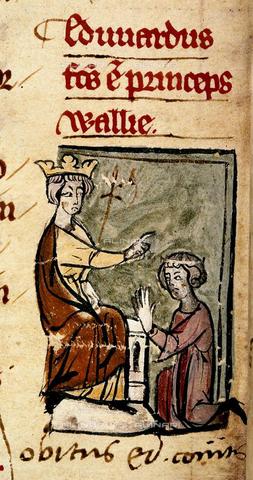 Edwardus
fcs ē princeps
wallie.
obitus ed. comitis